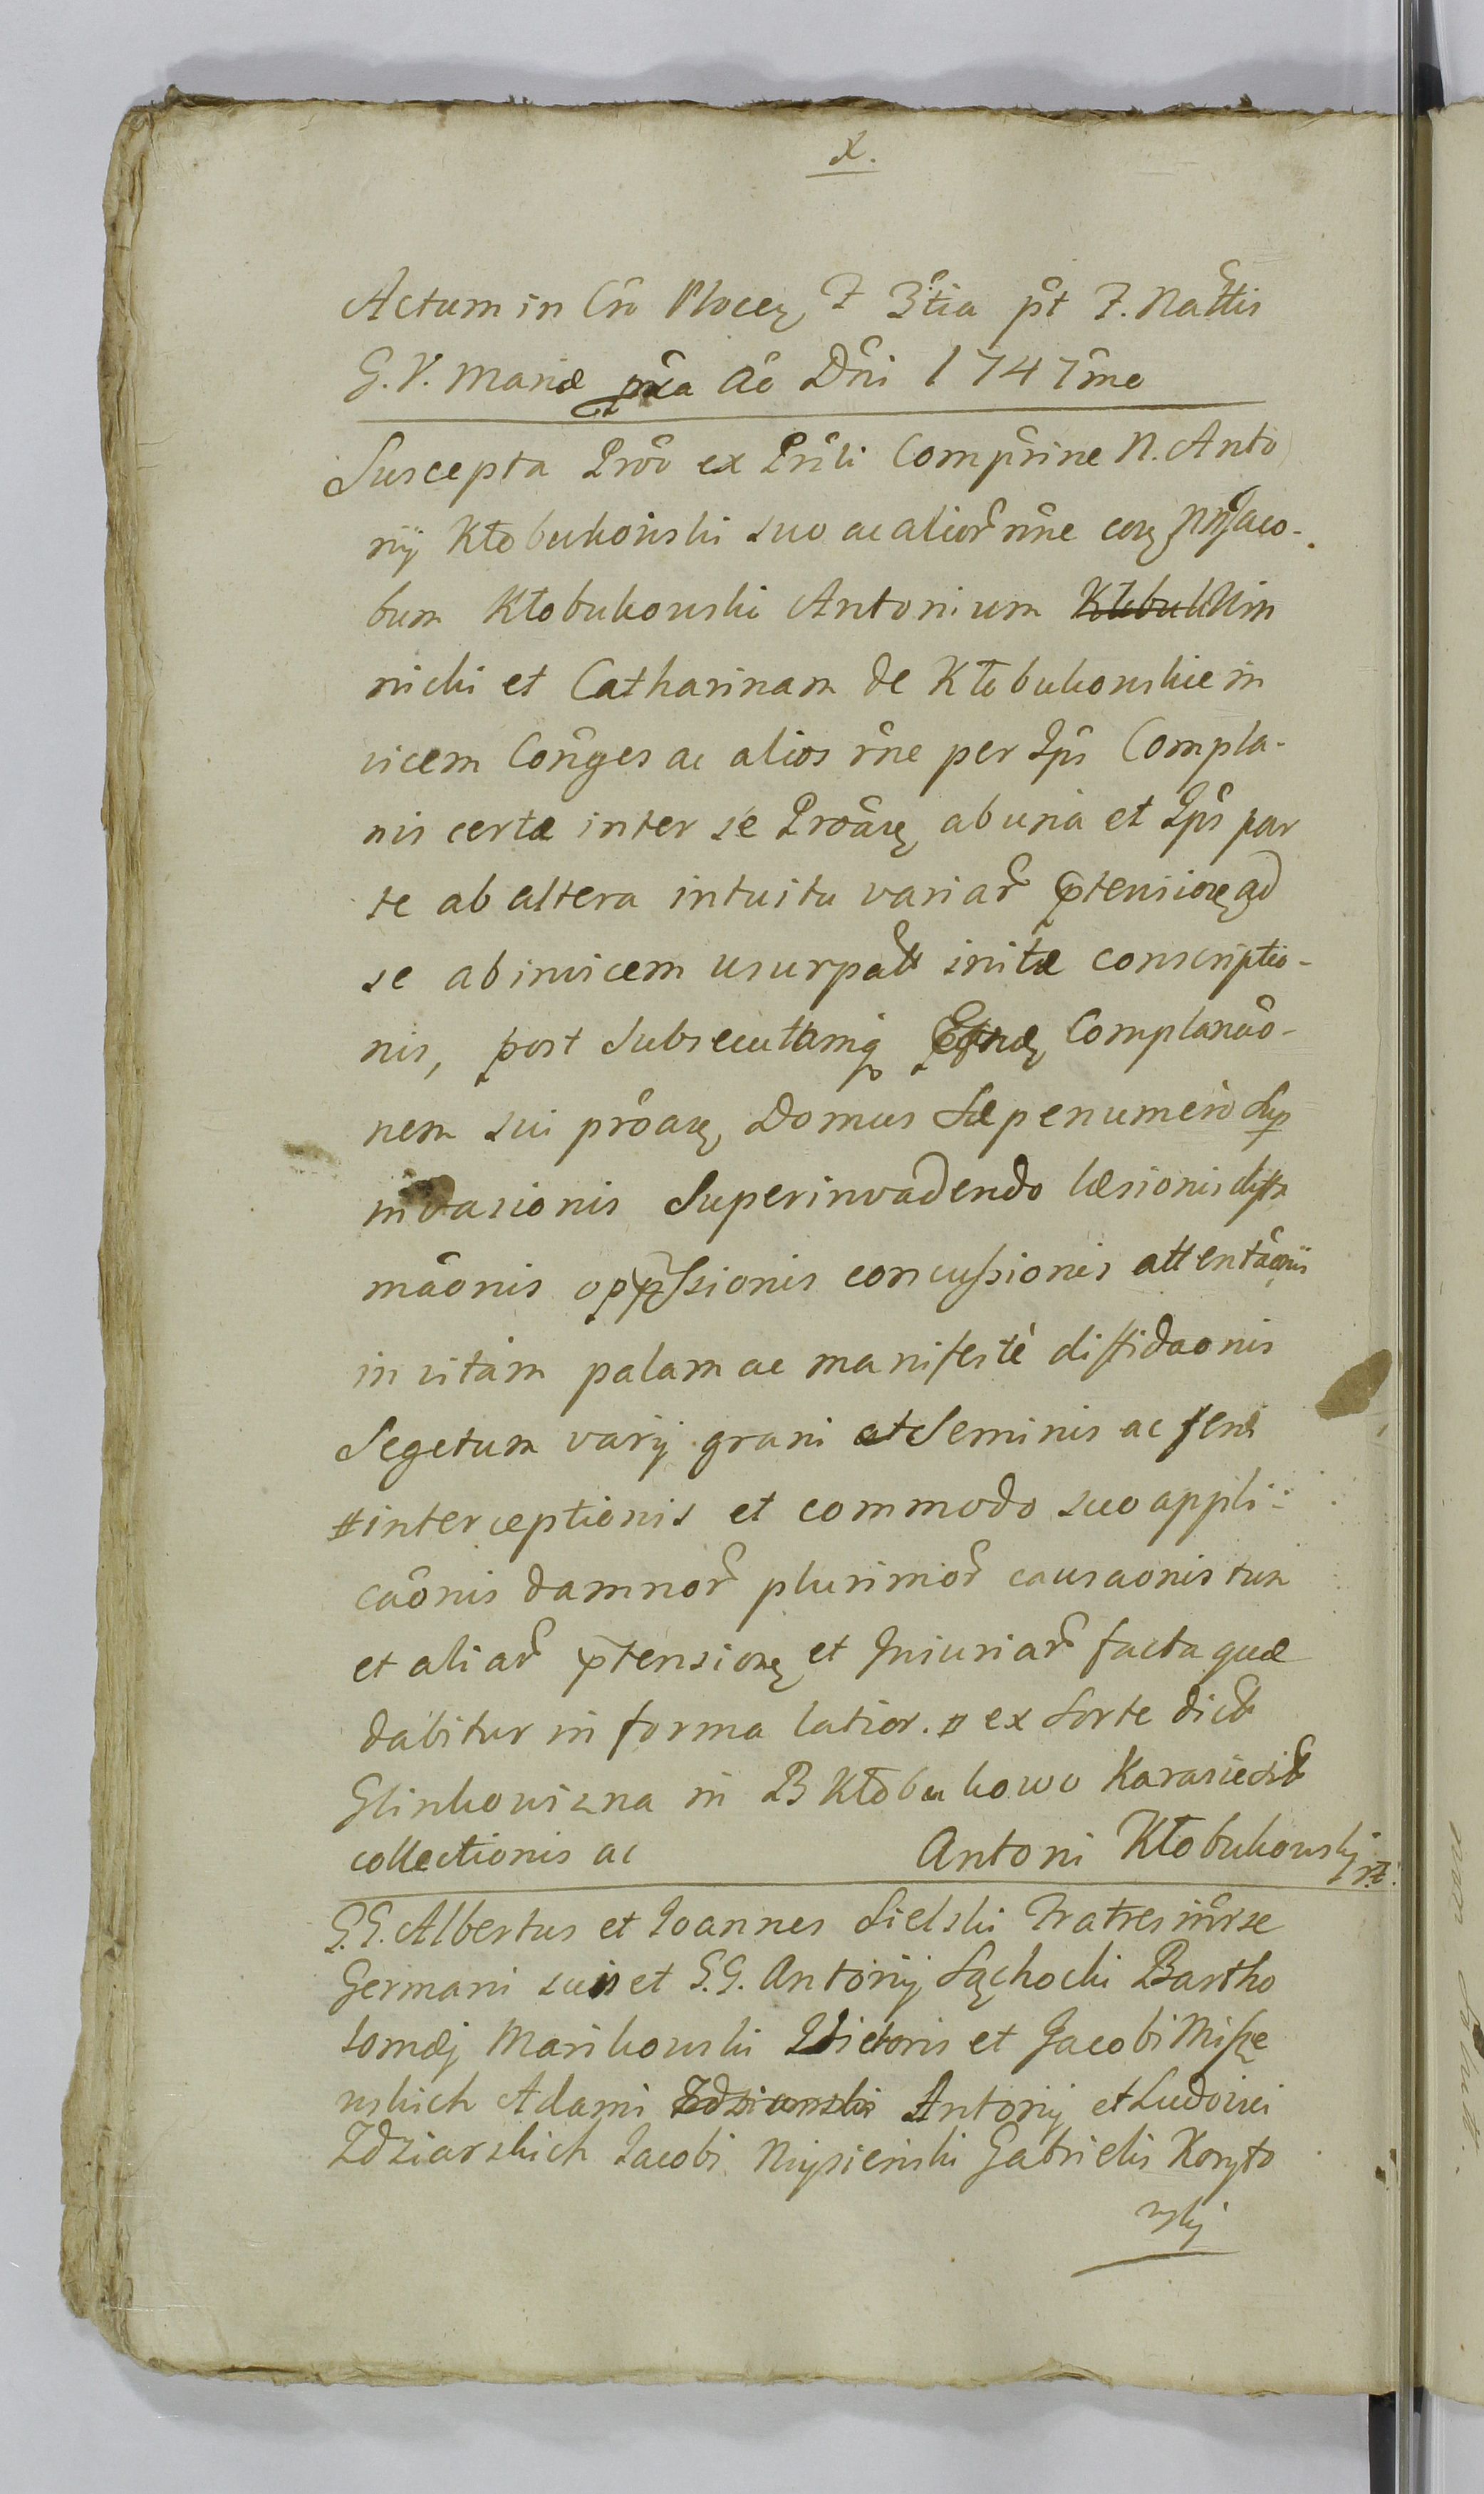 X.
Actum in Crô Plocen F 3tia pt F. Nattis
G. V. Mariæ pxa Aô Dni 1747mo
Suscepta Proô ex Prsli Comprine N. Anto
nij Kłobukowski suo ac alior nne con NN Jaco-
bum Kłobukowski Antonium Klobuk Nim
nicki et Catharinam de Kłobukowskie in
vicem Conges ac alios nne per Ips Compla-
nis certæ inter se Proâm ab una et Ips par
te ab altera intuitu variar ptension ad
se abinvicem usurpatt initæ conscriptio-
nis, post subsecutamq Complanaô-
nem sui proâm Domus Sæpenumero Sup
invasionis Superinvadendo læsionis diffa
mâonis oppssionis concussionis attentâonis
in vitam palam ac manifestè diffidaonis
Segetum varij grani et Seminis ac feni
# interceptionis et commodo suo appli-
câonis damnor plurimor causaonis tum
et aliar ptension et Iniuriar facta quæ
dabitur in forma latior. # ex Sorte dict
Glinkowizna in B Kłobukowo Karasie sit
collectionis ac Antoni Kłobukowski
G.G. Albertus et Joannes Sielski Fratres inrse
Germani suis et G.G. Antonij Sąchocki Bartho
lomæj Marikowski Victoris et Jacobi Misze
wskich Adami Zdziarski Antonij et Ludovici
Zdziarskich Jacobi Mysieński Gabrielis Koryto
wski